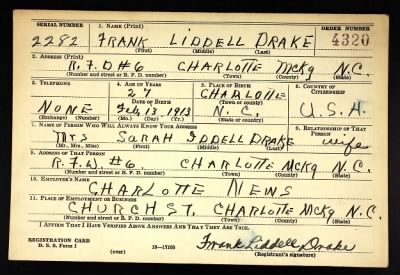 SERIAL NUMBER 1. NAME (Print) ORDER NUMBER
2282 FRANK LIDDELL DRAKE 4320
(First) (Middle) (Last)
2. ADDRESS (Print)
R.F.D #6 CHARLOTTE McKg N.C.
(Number and street or R. F. D. number) (Town) (County) (State)
3. TELEPHONE 4. AGE IN YEARS 5. PLACE OF BIRTH 6. COUNTRY OF CITIZENSHIP
27 CHARLOTTE
DATE OF BIRTH (Town or county)
NONE Feb 1913 N.C. U.S.A.
(Exchange) (Number) (Mo.) (Day) (Yr.) (State or country)
7. NAME OF PERSON WHO WILL ALWAYS KNOW YOUR ADDRESS 8. RELATIONSHIP OF THAT PERSON
MRS SARAH IDDELL DRAKE wife
(Mr., Mrs., Miss) (First) (Middle) (Last)
9. ADDRESS OF THAT PERSON
R.F.D. #6 CHARLOTTE McKg N.C.
(Number and street or R. F. D. number) (Town) (County) (State)
10. EMPLOYER'S NAME
CHARLOTTE NEWS
11. PLACE OF EMPLOYMENT OR BUSINESS
CHURCH ST. CHARLOTTE McKg N.C.
(Number and street or R. F. D. number) (Town) (County) (State)
I AFFIRM THAT I HAVE VERIFIED ABOVE ANSWERS AND THAT THEY ARE TRUE.
REGISTRATION CARD
D. S. S. Form 1 (over) 16—17105 Frank Liddell Drake
(Registrant's signature)